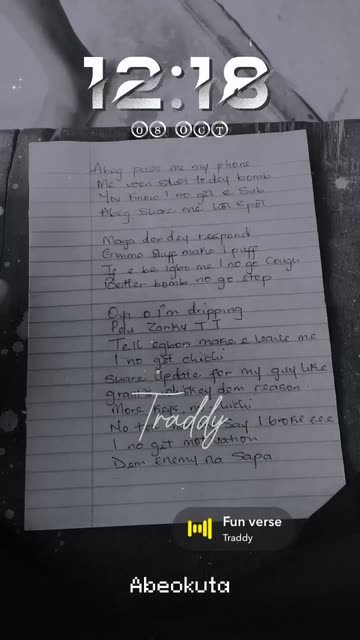 12:18
08 OCT
Abeg pass me my phone
Me veen start to day bomb
You know I no get e sub
Abeg Share me hot spot
Maga don dey respond
Gimme stuff make I puff
If e be Igbo me I no go cough
Better bomb no go stop
Oya o I'm dripping
Pdu Zanku TT
Tell egbon make e leave me
I no get chichi
Share update for my guy like
dem reason
More keys no
No Say I broke
I no get motivation
Dem Enemy na Sapa
Traddy
Fun verse
Traddy
Abeokuta